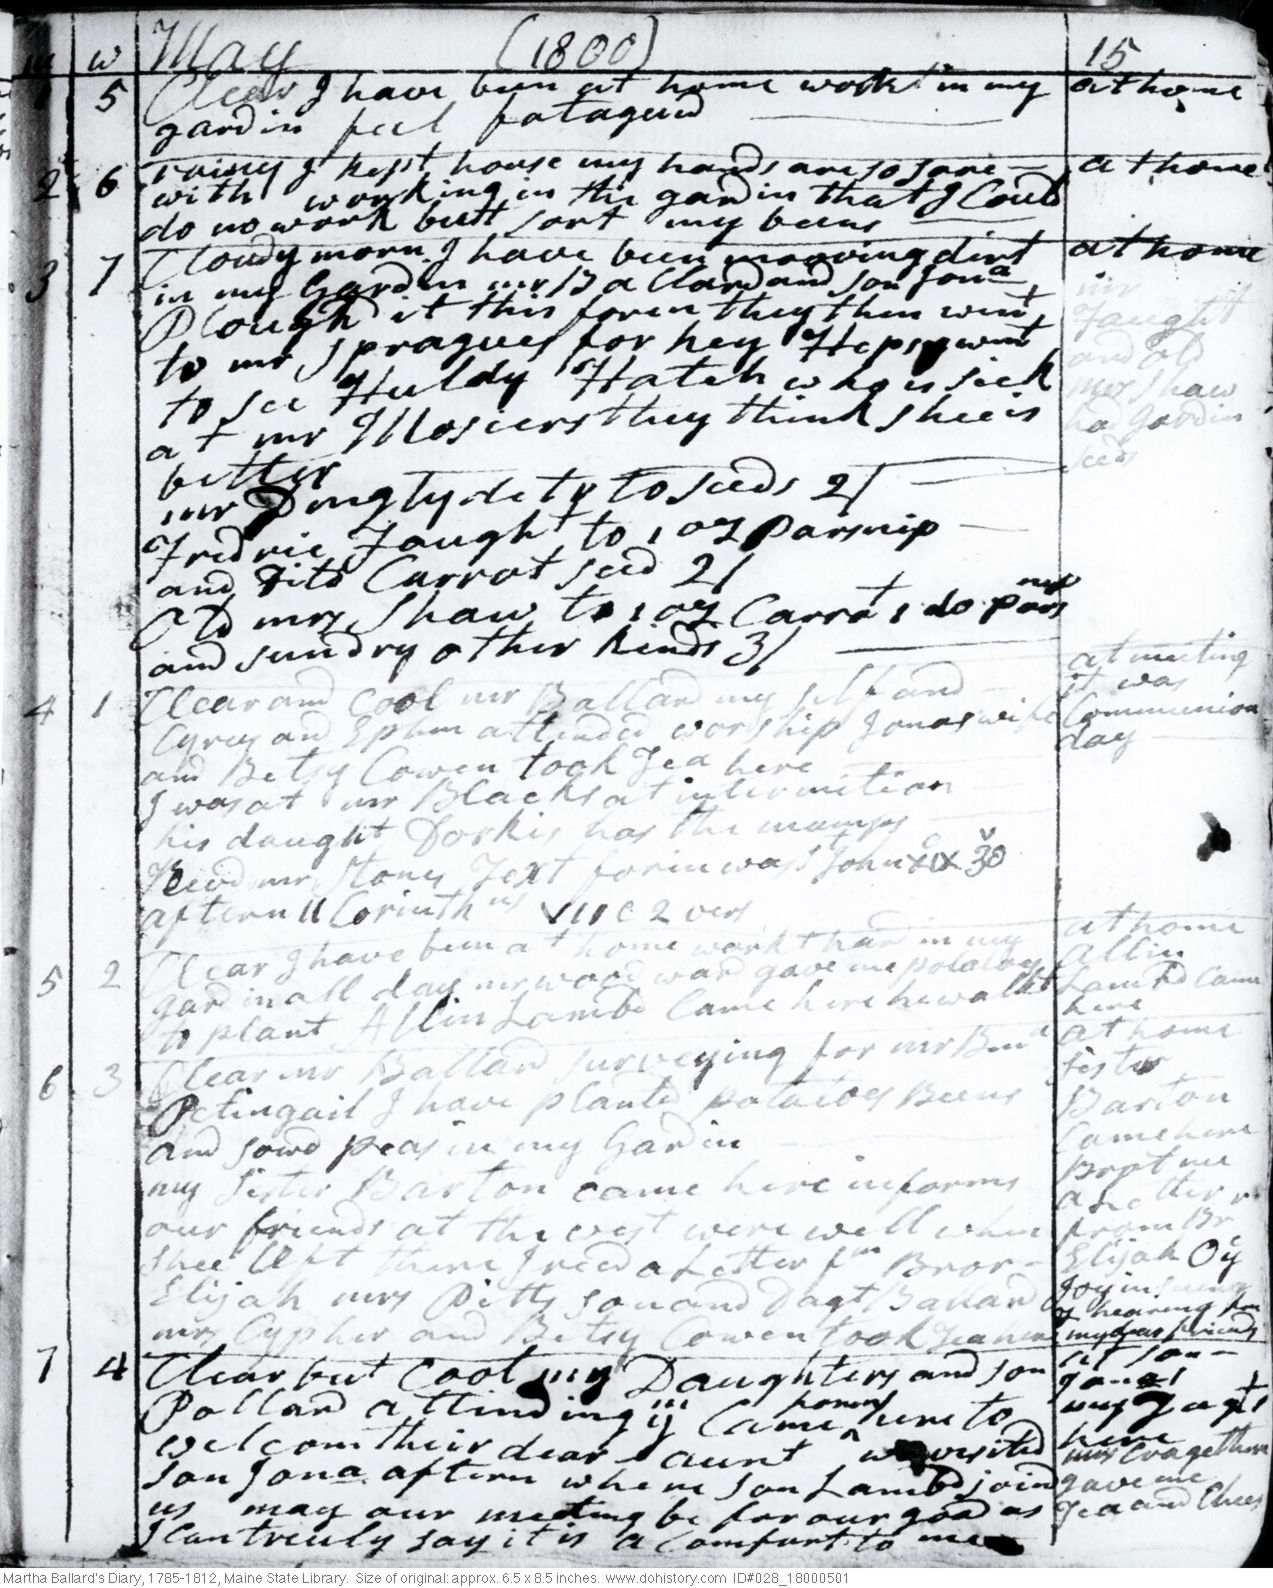 m w May (1800) 15
1 5 Clear I have been at home workt in my at home
gardin feel fatagued
2 6 rainy I kept house my hands are so sore at home
with working in the gardin that I Could
do no work butt sort my beens
3 7 Cloudy morn. I have been mooving dirt at home
in my Gardin mr Ballard and son Jona
Plough it this foren they then went
to mr Spragues for hey Hepsy went
to see Huldy Hatch who is sick
at mr Mosiers they think shee is
better
mr
Faught
and old
mrs Shaw
had gardin
seeds
mr Dingly detr to seeds 2/
Fredric Faught to 1 oz Parsnip
and Dito Carrot seed 2/
Old mrs Shaw to 1 oz Carrot 1 do Pars
nip
and sundry other kinds 3/
4 1 Clear and Cool mr Ballard my self and
Cyrus and Ephm attended worship Jonas wife
and Betsy Cowen took Tea here
I was at mr Blacks at intermition
his daught Dorkis has the mumps
Revd mr Stones Text forin was 1 John XIX 30
aftern II Corinth ns VIII C 2 vers
at meeting
it was
Communion
day
5 2 Clear I have been at home workt hard in my
gardin all day mr wood ward gave me potatoes
to plant Allin Lambd Came here he walkt
at home
Allin
Lambd Came
here
6 3 Clear mr Ballard surveying for mr Benj
Petingail I have planted potatoes Beens
and sowd peas in my Gardin
my Sister Barton came here informs
our friends at the west were well when
shee left there I recd a Letter fm Bror
Elijah mrs Pitts son and Dagt Ballard
mrs Cypher and Betsy Cowen took Tea here
at home
sister
Barton
Came here
Brot me
a Letter
from Br
Elijah
Joy in seeing
& hearing from
my dear friends
7 4 Clear but Cool my Daughters and son
Pollard attending Came here to
welcom their dear aunt we visited
son Jona aftern where son Lambd joind
us may our meeting be for our good as
I Can truly say it is a Comfort to me
at son
Jonas
my
here
mrs
gave me
Tea and Chees
Martha Ballard's Diary, 1785-1812, Maine State Library. Size of original: approx. 6.5 x 8.5 inches. www.dohistory.com ID#028_18000501